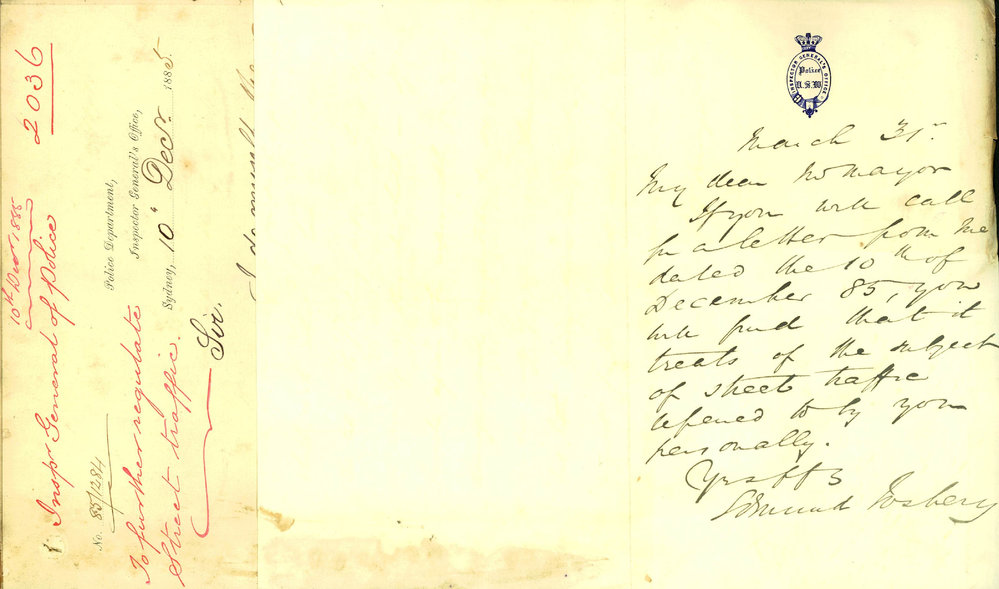 2036
10th Decr 1885
Inspr General of Police
No. 85/1284
Police Department,
Inspector General's Office,
Sydney, 10th Decr. 1885.
To further regulate
Street traffic.
Sir.
INSPECTOR GENERAL'S OFFICE
Police
N.S.W.
March 31st
My dear Mr Mayor
If you will call
for a letter from me
dated the 10th of
December 85, you
will find that it
treats of the subject
of street traffic
referred to by you
personally.
Edmund Fosbery